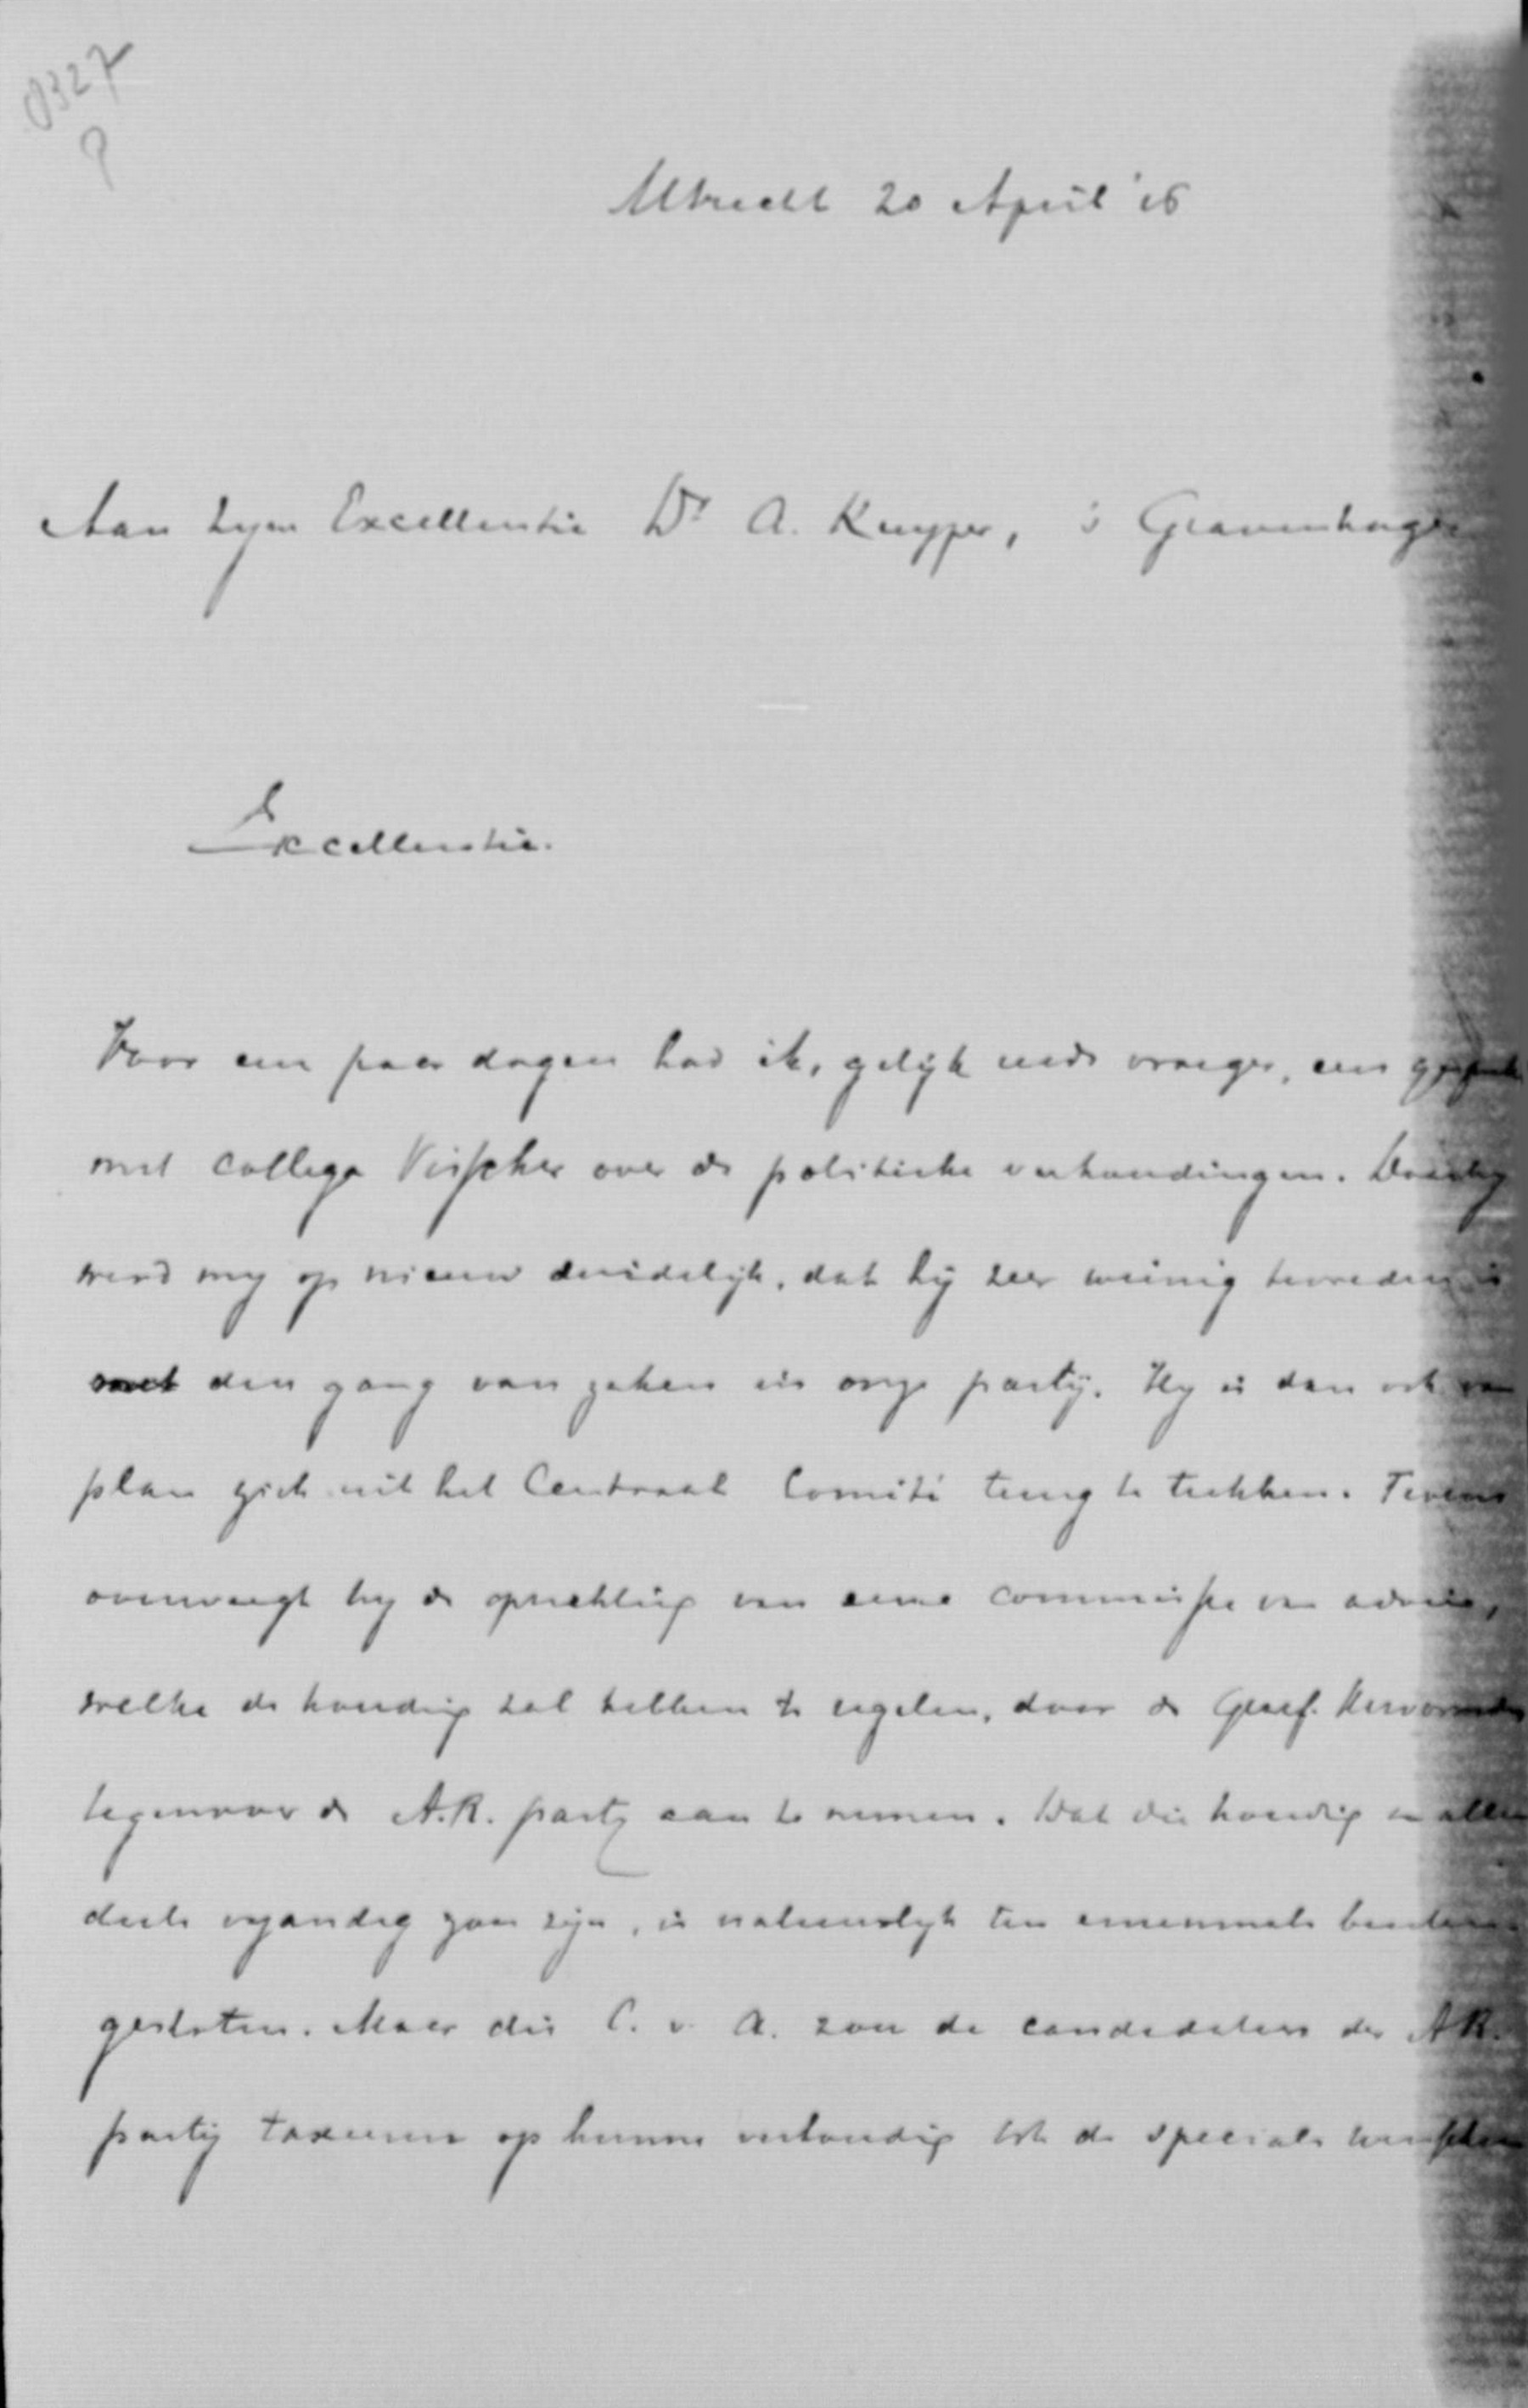 8327
Utrecht 20 April '16
Aan Zyne Excellentie Dr A. Kuyper, 's Gravenhage
Excellentie.
Voor een paar dagen had ik, gelijk reeds vroeger, een gesprek
met collega Visscher over de politieke verhoudingen. Daarby
werd my op nieuw duidelijk, dat hij zeer weinig tevreden is
met den gang van zaken in onze partij. Hy is dan ook van
plan zich uit het Centraal Comité terug te trekken. Tevens
overweegt hy de oprichting van eene commissie van advies,
welke de houding zal hebben te regelen, door de Geref. Hervormden
tegenover de A.R. party aan te nemen. Dat die houding in allen
deele vyandig zou zijn, is natuurlyk ten eenenmale buiten-
gesloten. Maar die C. v. A. zou de candidaten der A.R.
partij taxeeren op hunne verhouding tot de speciale wenschen